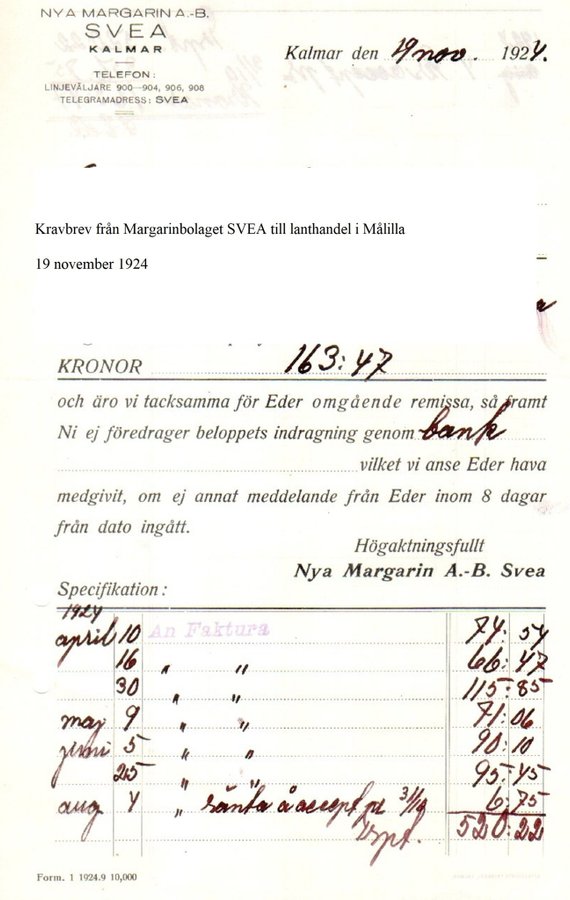 NYA MARGARIN A.-B.
SVEA
KALMAR
TELEFON:
LINJEVÄLJARE 900—904, 906, 908
TELEGRAMADRESS: SVEA
Kalmar den 19 nov. 1924.
Kravbrev från Margarinbolaget SVEA till lanthandel i Målilla
19 november 1924
KRONOR 163:47
och äro vi tacksamma för Eder omgående remissa, så framt
Ni ej föredrager beloppets indragning genom bank
vilket vi anse Eder hava
medgivit, om ej annat meddelande från Eder inom 8 dagar
från dato ingått.
Högaktningsfullt
Nya Margarin A.-B. Svea
Specifikation:
1924
april 10 An Faktura 74:54
16 " " 66:47
30 " " 115:85
maj 9 " " 71:06
juni 5 " " 90:10
25 " " 95:45
aug 4 " ränta å accept pr 31/10 6:75
Trpt. 520:22
Form. 1 1924.9 10,000